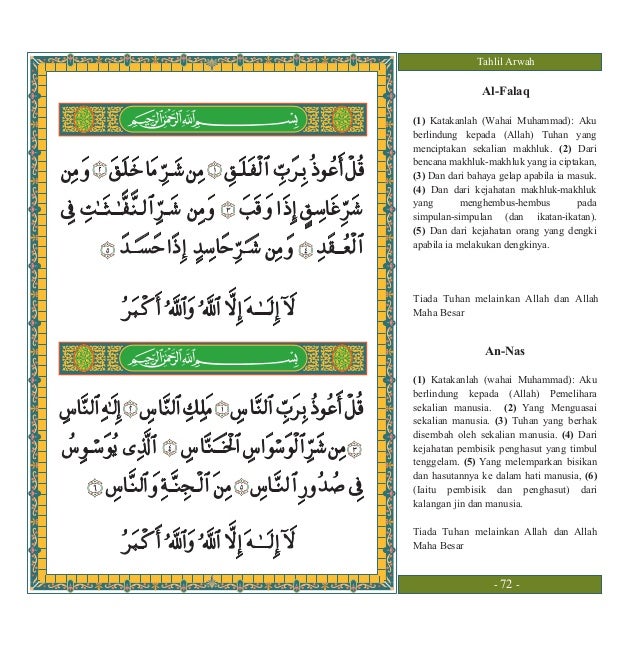 Tahlil Arwah
بِسْمِ ٱللَّهِ ٱلرَّحْمَٰنِ ٱلرَّحِيمِ
قُلْ أَعُوذُ بِرَبِّ ٱلْفَلَقِ ۝١ مِن شَرِّ مَا خَلَقَ ۝٢ وَمِن
شَرِّ غَاسِقٍ إِذَا وَقَبَ ۝٣ وَمِن شَرِّ ٱلنَّفَّٰثَٰتِ فِى
ٱلْعُقَدِ ۝٤ وَمِن شَرِّ حَاسِدٍ إِذَا حَسَدَ ۝٥
لَآ إِلَٰهَ إِلَّا ٱللَّهُ وَٱللَّهُ أَكْبَرُ
بِسْمِ ٱللَّهِ ٱلرَّحْمَٰنِ ٱلرَّحِيمِ
قُلْ أَعُوذُ بِرَبِّ ٱلنَّاسِ ۝١ مَلِكِ ٱلنَّاسِ ۝٢ إِلَٰهِ ٱلنَّاسِ
۝٣ مِن شَرِّ ٱلْوَسْوَاسِ ٱلْخَنَّاسِ ۝٤ ٱلَّذِى يُوَسْوِسُ
فِى صُدُورِ ٱلنَّاسِ ۝٥ مِنَ ٱلْجِنَّةِ وَٱلنَّاسِ ۝٦
لَآ إِلَٰهَ إِلَّا ٱللَّهُ وَٱللَّهُ أَكْبَرُ
Al-Falaq
(1) Katakanlah (Wahai Muhammad): Aku
berlindung kepada (Allah) Tuhan yang
menciptakan sekalian makhluk. (2) Dari
bencana makhluk-makhluk yang ia ciptakan,
(3) Dan dari bahaya gelap apabila ia masuk.
(4) Dan dari kejahatan makhluk-makhluk
yang menghembus-hembus pada
simpulan-simpulan (dan ikatan-ikatan).
(5) Dan dari kejahatan orang yang dengki
apabila ia melakukan dengkinya.
Tiada Tuhan melainkan Allah dan Allah
Maha Besar
An-Nas
(1) Katakanlah (wahai Muhammad): Aku
berlindung kepada (Allah) Pemelihara
sekalian manusia. (2) Yang Menguasai
sekalian manusia. (3) Tuhan yang berhak
disembah oleh sekalian manusia. (4) Dari
kejahatan pembisik penghasut yang timbul
tenggelam. (5) Yang melemparkan bisikan
dan hasutannya ke dalam hati manusia, (6)
(Iaitu pembisik dan penghasut) dari
kalangan jin dan manusia.
Tiada Tuhan melainkan Allah dan Allah
Maha Besar
- 72 -